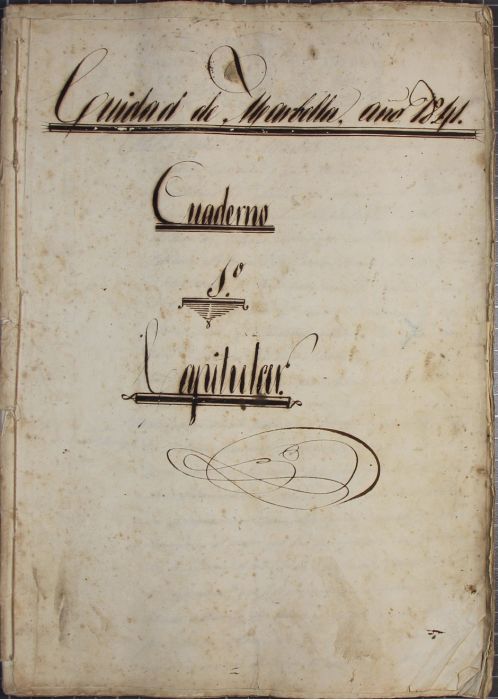 Ciudad de Marbella, año 1841.
Cuaderno
1.º
Capitular.